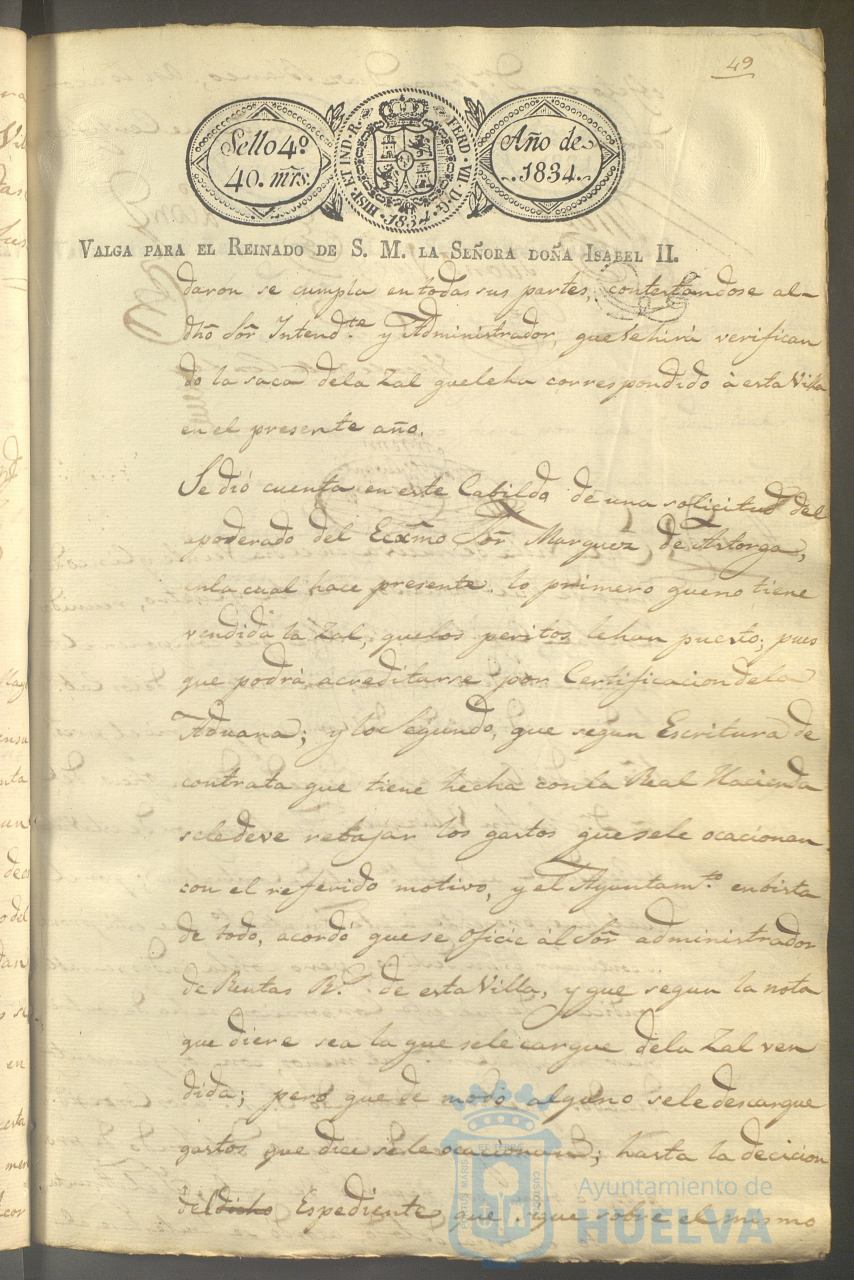 49
Sello 4º
40. mrs.
HISP. ET IND. R. FERD. VII. D. G.
1834
Año de
1834.
VALGA PARA EL REINADO DE S. M. LA SEÑORA DOÑA ISABEL II.
daron se cumpla en todas sus partes, contestandose al
dhô Sôr Intendte y Administrador, que se hirá verifican
do la saca dela Zal que leha correspondido à esta Villa
en el presente año.
Se dió cuenta en este Cabildo de una solicitud del
apoderado del Ecxmo Sôr Marquez de Astorga,
enla cual hace presente lo primero que no tiene
vendida la Zal, que los peritos lehan puesto; pues
que podrá acreditarse por Certificacion dela
Aduana; y lo Segundo, que segun Escritura de
contrata que tiene hecha con la Real Hacienda
sele deve rebajar los gastos que se le ocacionen
con el referido motivo, y el Ayuntamto en bista
de todo, acordó que se oficie àl Sôr administrador
de Rentas Rs de esta Villa, y que segun la nota
que diere sea la que sele cargue dela Zal ven
dida; pero que de modo alguno sele descargue
gastos que dice sele ocacionan; hasta la decicion
del dicho Espediente que sigue sobre el mismo
PORTUS MARIS ET TERRE CUSTODIA
Ayuntamiento de
HUELVA